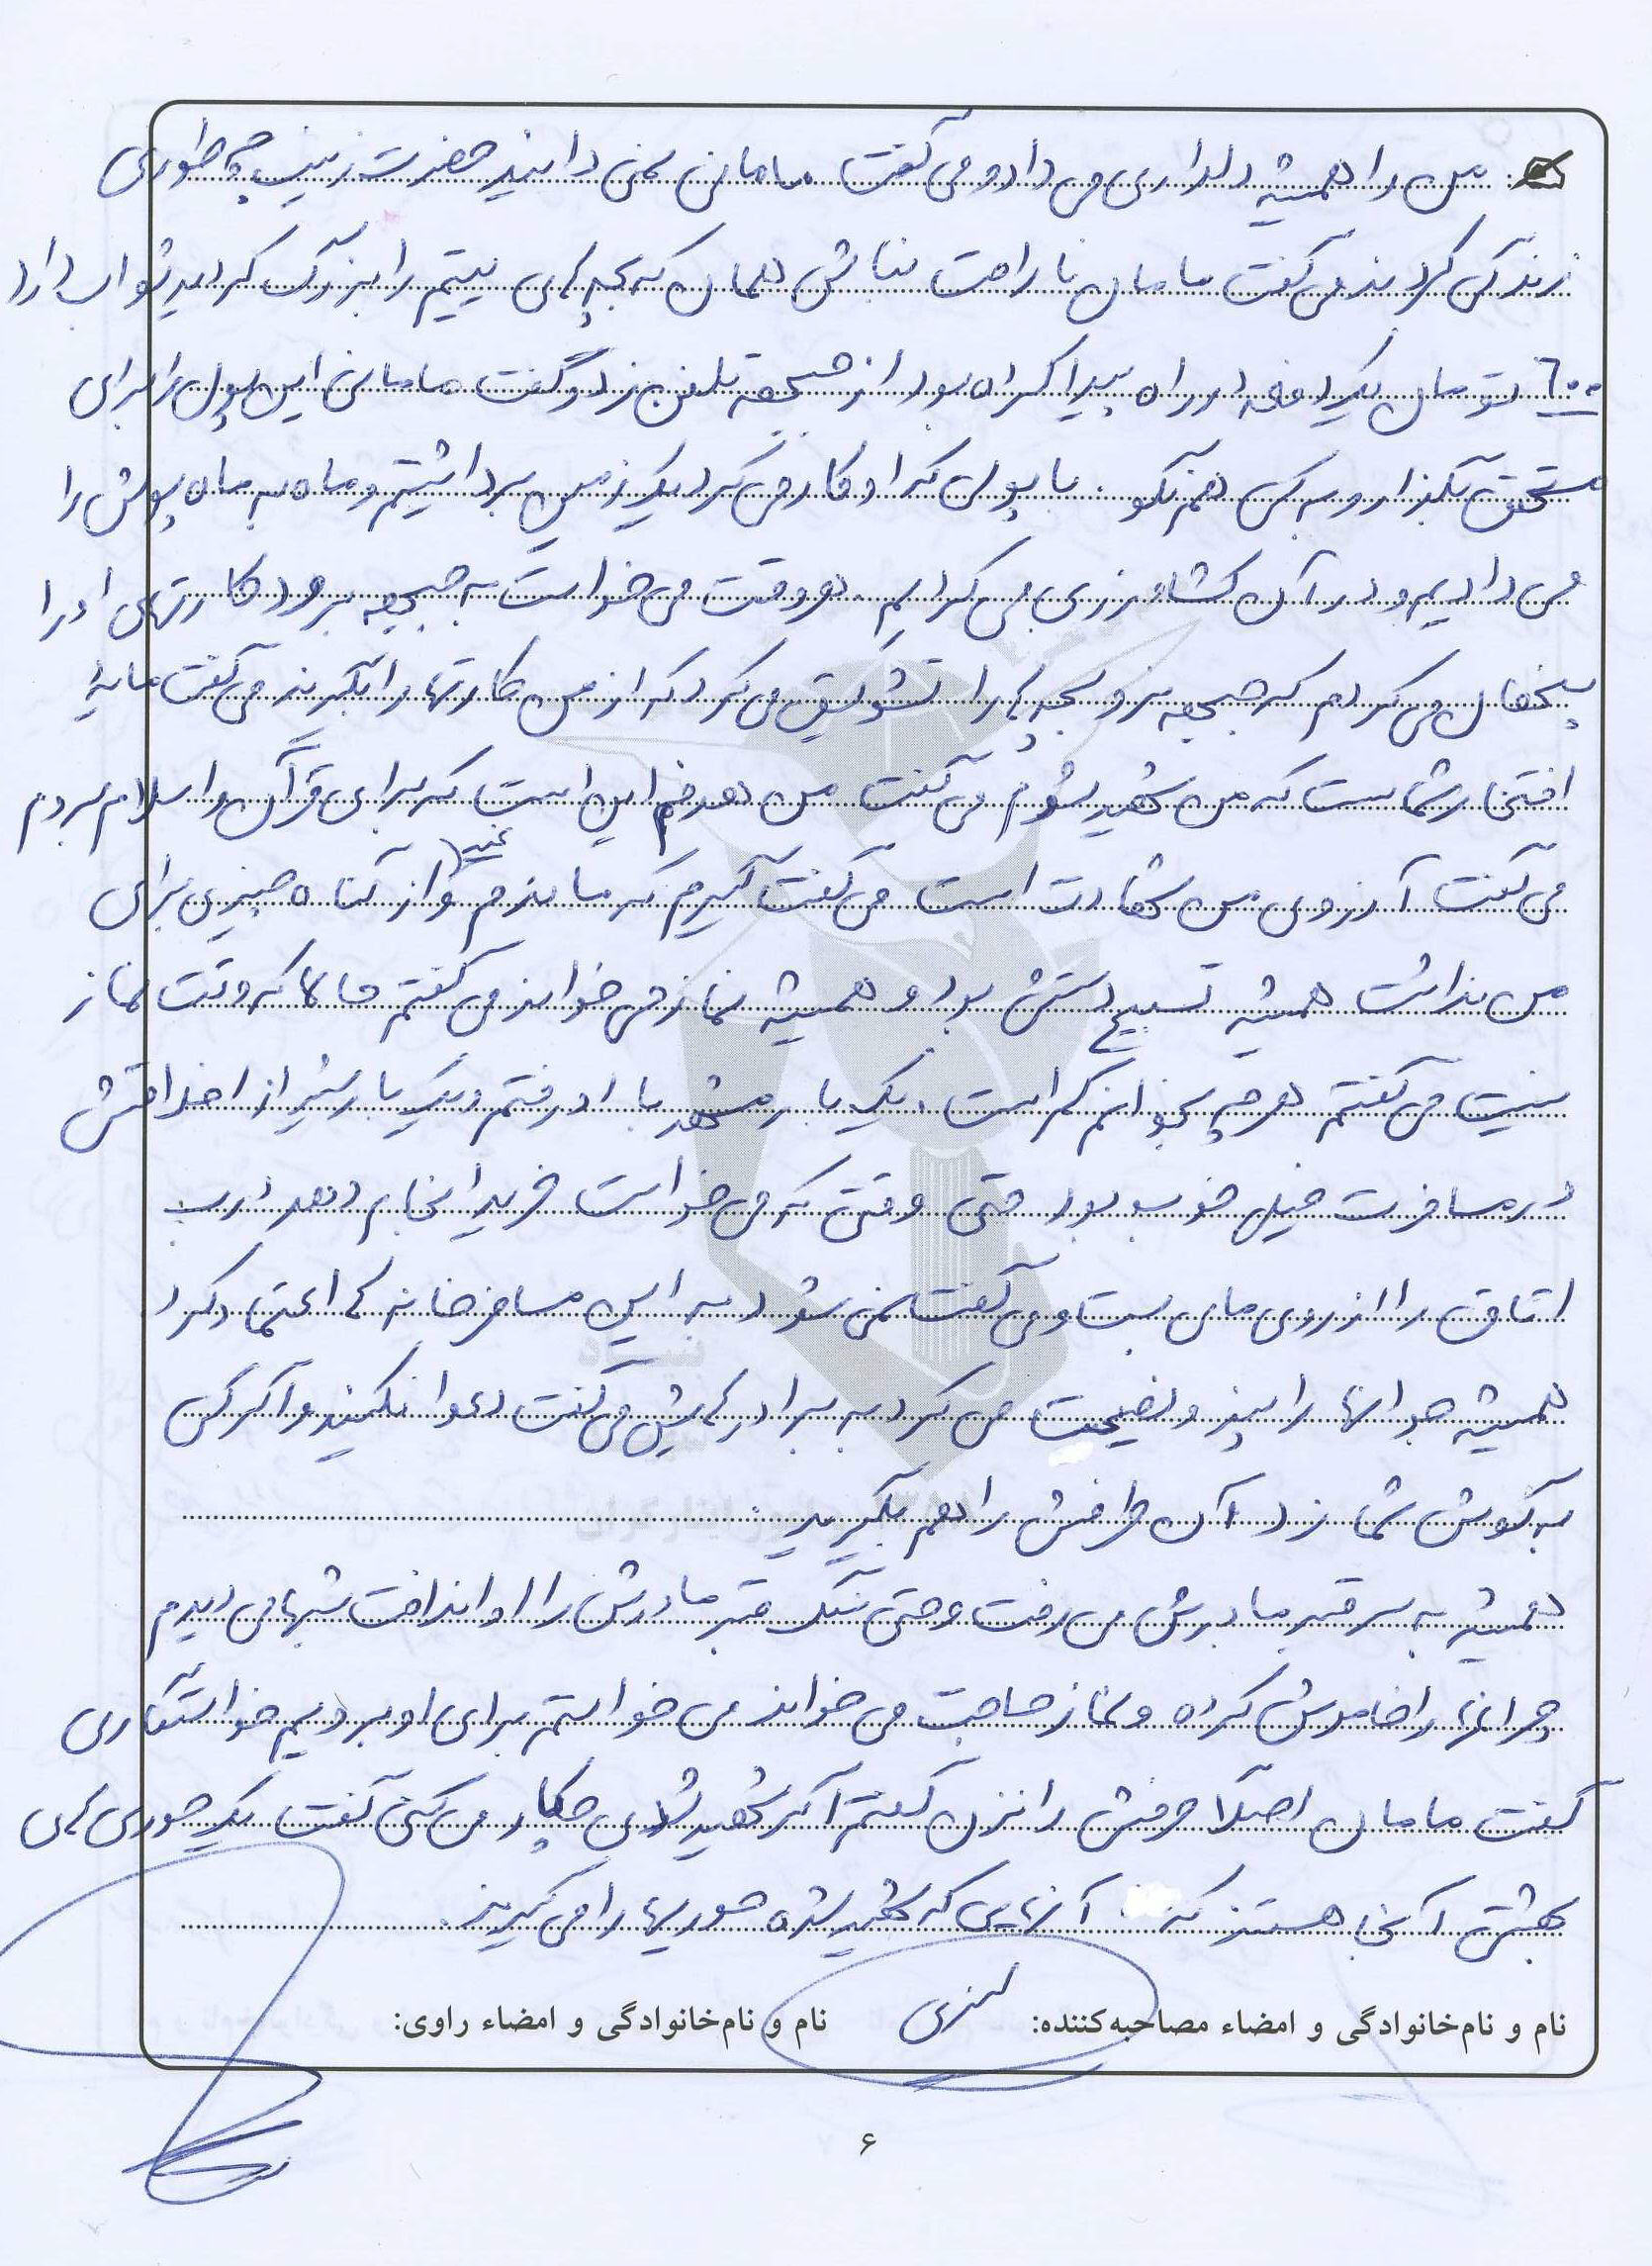 من را همیشه دلداری می داد و می گفت مامان نمی دانید حضرت زینب چه طوری
زندگی کردند می گفت مامان ناراحت نباش همان که بچه های یتیم را بزرگ کردید ثواب دارد
۶۰۰ تومان یکدفعه در راه پیدا کرده بود از جبهه تلفن زد و گفت مامان این پول را برای
مستحق بگذار و به کسی هم نگو . با پولی که او کار می کرد یک زمین برداشتیم و ماه به ماه پولش را
می دادیم و در آن کشاورزی می کردیم . هر وقت می خواست به جبهه برود کارتهای او را
پنهان می کردم که جبهه نرود بچه ها را تشویق می کرد که از من کارتها را بگیرند می گفت مایه
افتخار شماست که من شهید شوم می گفت من هدفم این است که برای قرآن و اسلام بروم
می گفت آرزوی من شهادت است می گفت گیرم که ماندم و از گناه چیزی برای
من نداشت همیشه تسبیح دستش بود و همیشه نماز می خواند می گفتم حالا که وقت نماز
نیست می گفتم هر چه بخوانم کم است . یک بار مشهد با او رفتم و یک بار نیز از اخلاقش
در مسافرت خیلی خوب بود حتی وقتی که می خواست خرید انجام دهد درب
اتاق را از روی ما می بست و می گفت نمی شود به این مسافرخانه ها اعتماد کرد
همیشه جوانها را پند و نصیحت می کرد به برادرهایش می گفت دعوا نکنید و اگر کسی
به گوش شما زد آن طرفش را هم بگیرید .
همیشه به سر قبر مادرش می رفت و حتی سنگ قبر مادرش را او انداخت شبها می دیدم
چراغها را خاموش کرده و نماز حاجت می خواند می خواستم برای او برویم خواستگاری
گفت مامان اصلاً حرفش را نزن گفتم اگر شهید شدی چکار می کنی گفت یک حوری های
بهشتی آنجا هستند که آنهایی که شهید شده حوریها را می گیرند .
نام و نام‌خانوادگی و امضاء مصاحبه‌کننده: نام و نام‌خانوادگی و امضاء راوی:
۶